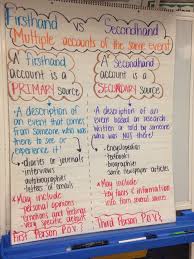 Firsthand vs Secondhand
Multiple accounts of the same event
A firsthand
account is a
PRIMARY source
A Secondhand
account is a
SECONDARY source
• A description of
an event that comes
from someone who was
there to see or
experience it!
→ diaries or journals
→ interviews
→ autobiographies
→ letters/emails
• May include:
personal opinions
emotions and feelings
very specific details
First Person P.O.V.
• A description of an
event based on research
written or told by
someone who was
not there
→ encyclopedias
→ textbooks
→ biographies
→ some newspaper articles
• May include:
key facts & information
from several sources
Third Person P.O.V.